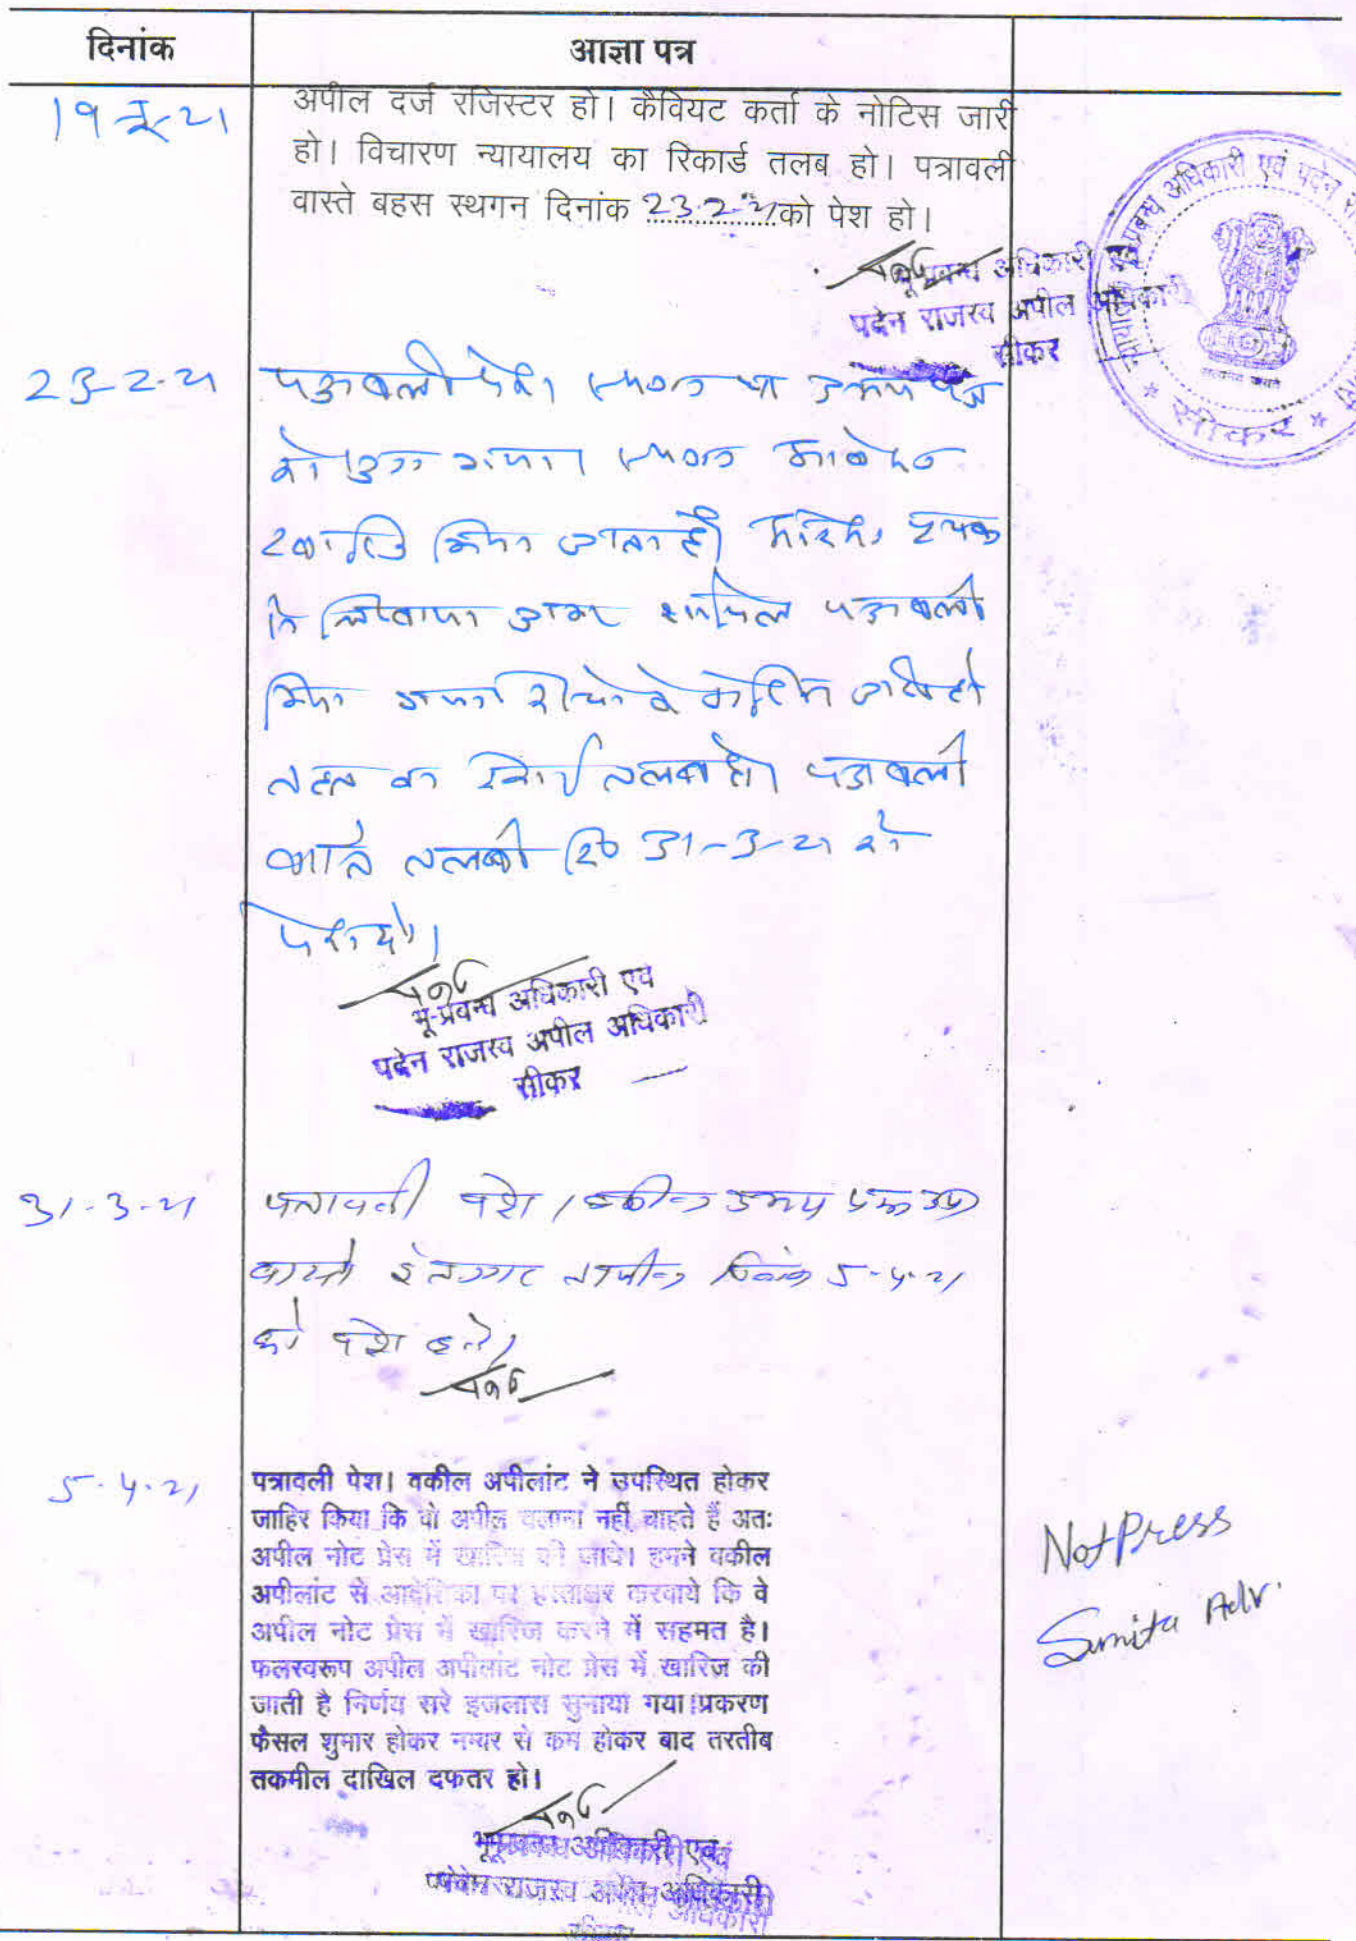 दिनांक
आज्ञा पत्र
अपील दर्ज रजिस्टर हो। कैवियट कर्ता के नोटिस जारी
हो। विचारण न्यायालय का रिकार्ड तलब हो। पत्रावली
वास्ते बहस स्थगन दिनांक 23.2.21 को पेश हो।
भू-प्रबन्ध अधिकारी एवं
पदेन राजस्व अपील अधिकारी
सीकर
अधिकारी एवं पदेन
सीकर
23-2-21
पत्रावली पेश। स्थगन पर उभय पक्ष
को सुना गया। स्थगन आवेदन
खारिज किया जाता है।
लिखाया जाकर शामिल पत्रावली
किया गया। जारी हो
का रिकार्ड तलब हो। पत्रावली
वास्ते तलबी दि० 31-3-21 को
पेश हो।
भू-प्रबन्ध अधिकारी एवं
पदेन राजस्व अपील अधिकारी
सीकर
31-3-21
पत्रावली पेश। वकील उभय पक्ष उप०
वास्ते इन्तजार तामील दिनांक 5-4-21
को पेश हो।
5-4-21
पत्रावली पेश। वकील अपीलांट ने उपस्थित होकर
जाहिर किया कि वो अपील चलाना नहीं चाहते हैं अतः
अपील नोट प्रेस में खारिज की जावे। हमने वकील
अपीलांट से आदेशिका पर हस्ताक्षर करवाये कि वे
अपील नोट प्रेस में खारिज करने में सहमत है।
फलस्वरूप अपील अपीलांट नोट प्रेस में खारिज की
जाती है निर्णय सरे इजलास सुनाया गया।प्रकरण
फैसल शुमार होकर नम्बर से कम होकर बाद तरतीब
तकमील दाखिल दफतर हो।
Not Press
Sumita Adv.
भू-प्रबन्ध अधिकारी एवं
पदेन राजस्व अपील अधिकारी
सीकर